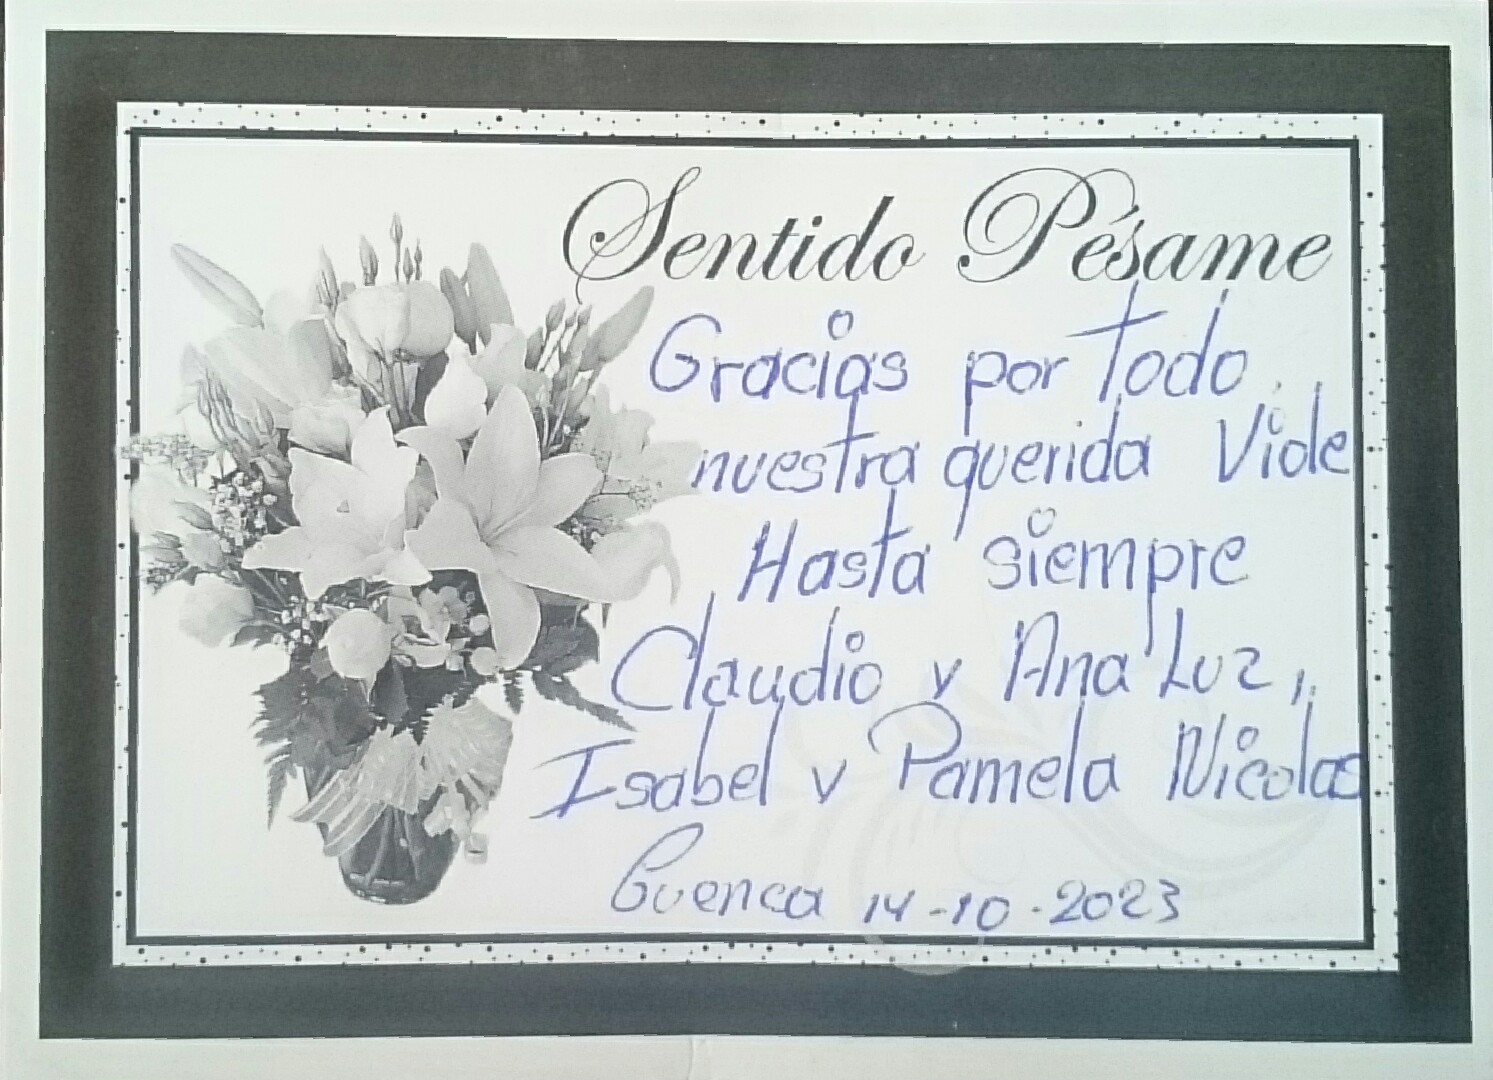 Sentido Pésame
Gracias por todo
nuestra querida Viole
Hasta siempre
Claudio y Ana Luz,
Isabel y Pamela Nicolas
Cuenca 14-10-2023